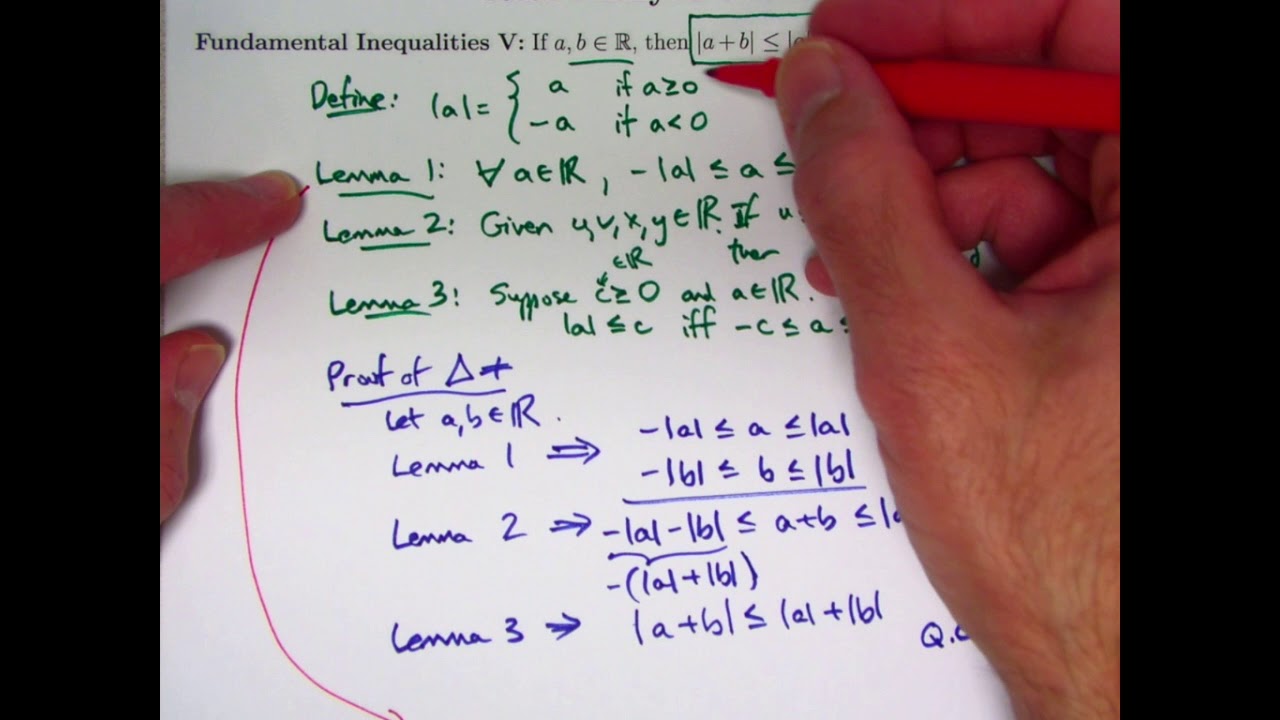 Fundamental Inequalities V: If a, b ∈ ℝ, then |a + b| ≤ |a
Define: |a| = { a if a ≥ 0
-a if a < 0
Lemma 1: ∀ a ∈ ℝ, -|a| ≤ a ≤
Lemma 2: Given u, v, x, y ∈ ℝ. If u
then
∈ℝ
Lemma 3: Suppose c ≥ 0 and a ∈ ℝ.
|a| ≤ c iff -c ≤ a ≤
Proof of Δ≠
Let a, b ∈ ℝ.
Lemma 1 ⇒ -|a| ≤ a ≤ |a|
-|b| ≤ b ≤ |b|
Lemma 2 ⇒ -|a| - |b| ≤ a+b ≤ |a
-(|a| + |b|)
Lemma 3 ⇒ |a + b| ≤ |a| + |b|
Q.